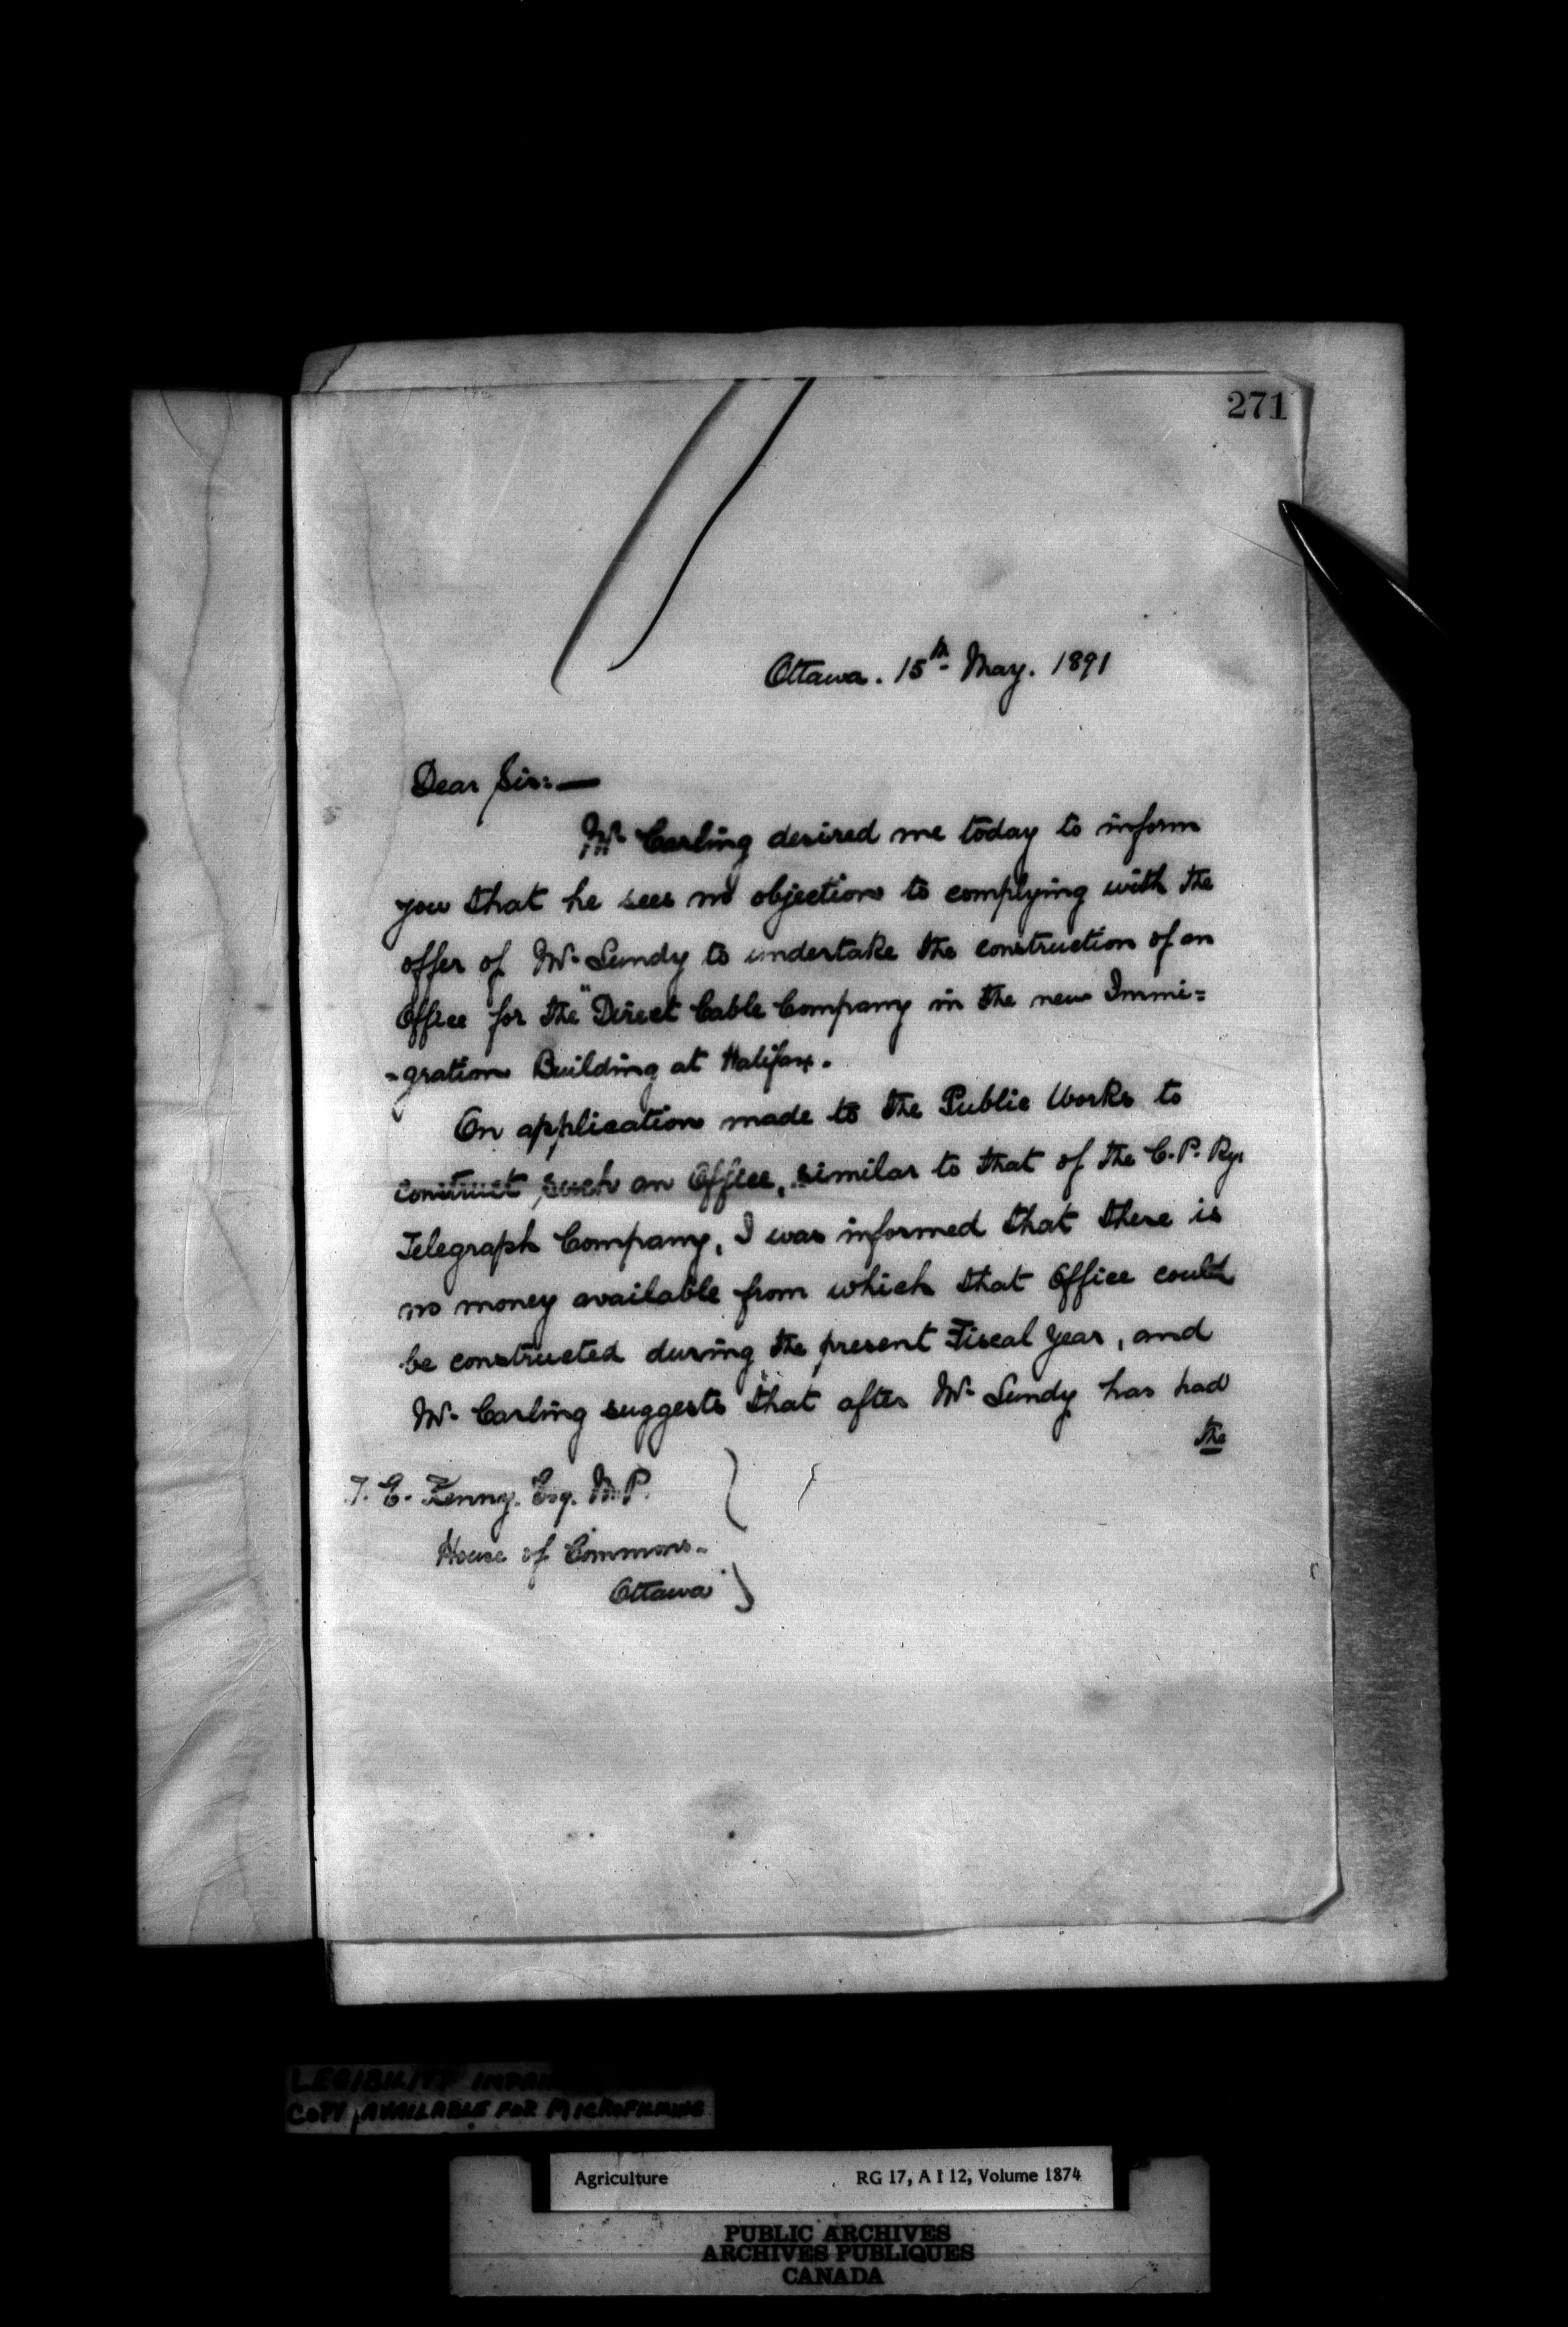 271
Ottawa. 15th May. 1891
Dear Sir:—
Mr. Carling desired me today to inform
you that he sees no objection to complying with the
offer of Mr. Lundy to undertake the construction of an
Office for the "Direct Cable Company in the new Immi=
-gration Building at Halifax.
On application made to the Public Works to
construct such an Office, similar to that of the C.P. Ry.
Telegraph Company, I was informed that there is
no money available from which that Office could
be constructed during the present Fiscal Year, and
Mr. Carling suggests that after Mr. Lundy has had
the
T. E. Kenny. Esq. M.P.
House of Commons.
Ottawa
LEGIBILITY
COPY AVAILABLE FOR MICROFILMING
Agriculture RG 17, A I 12, Volume 1874
PUBLIC ARCHIVES
ARCHIVES PUBLIQUES
CANADA